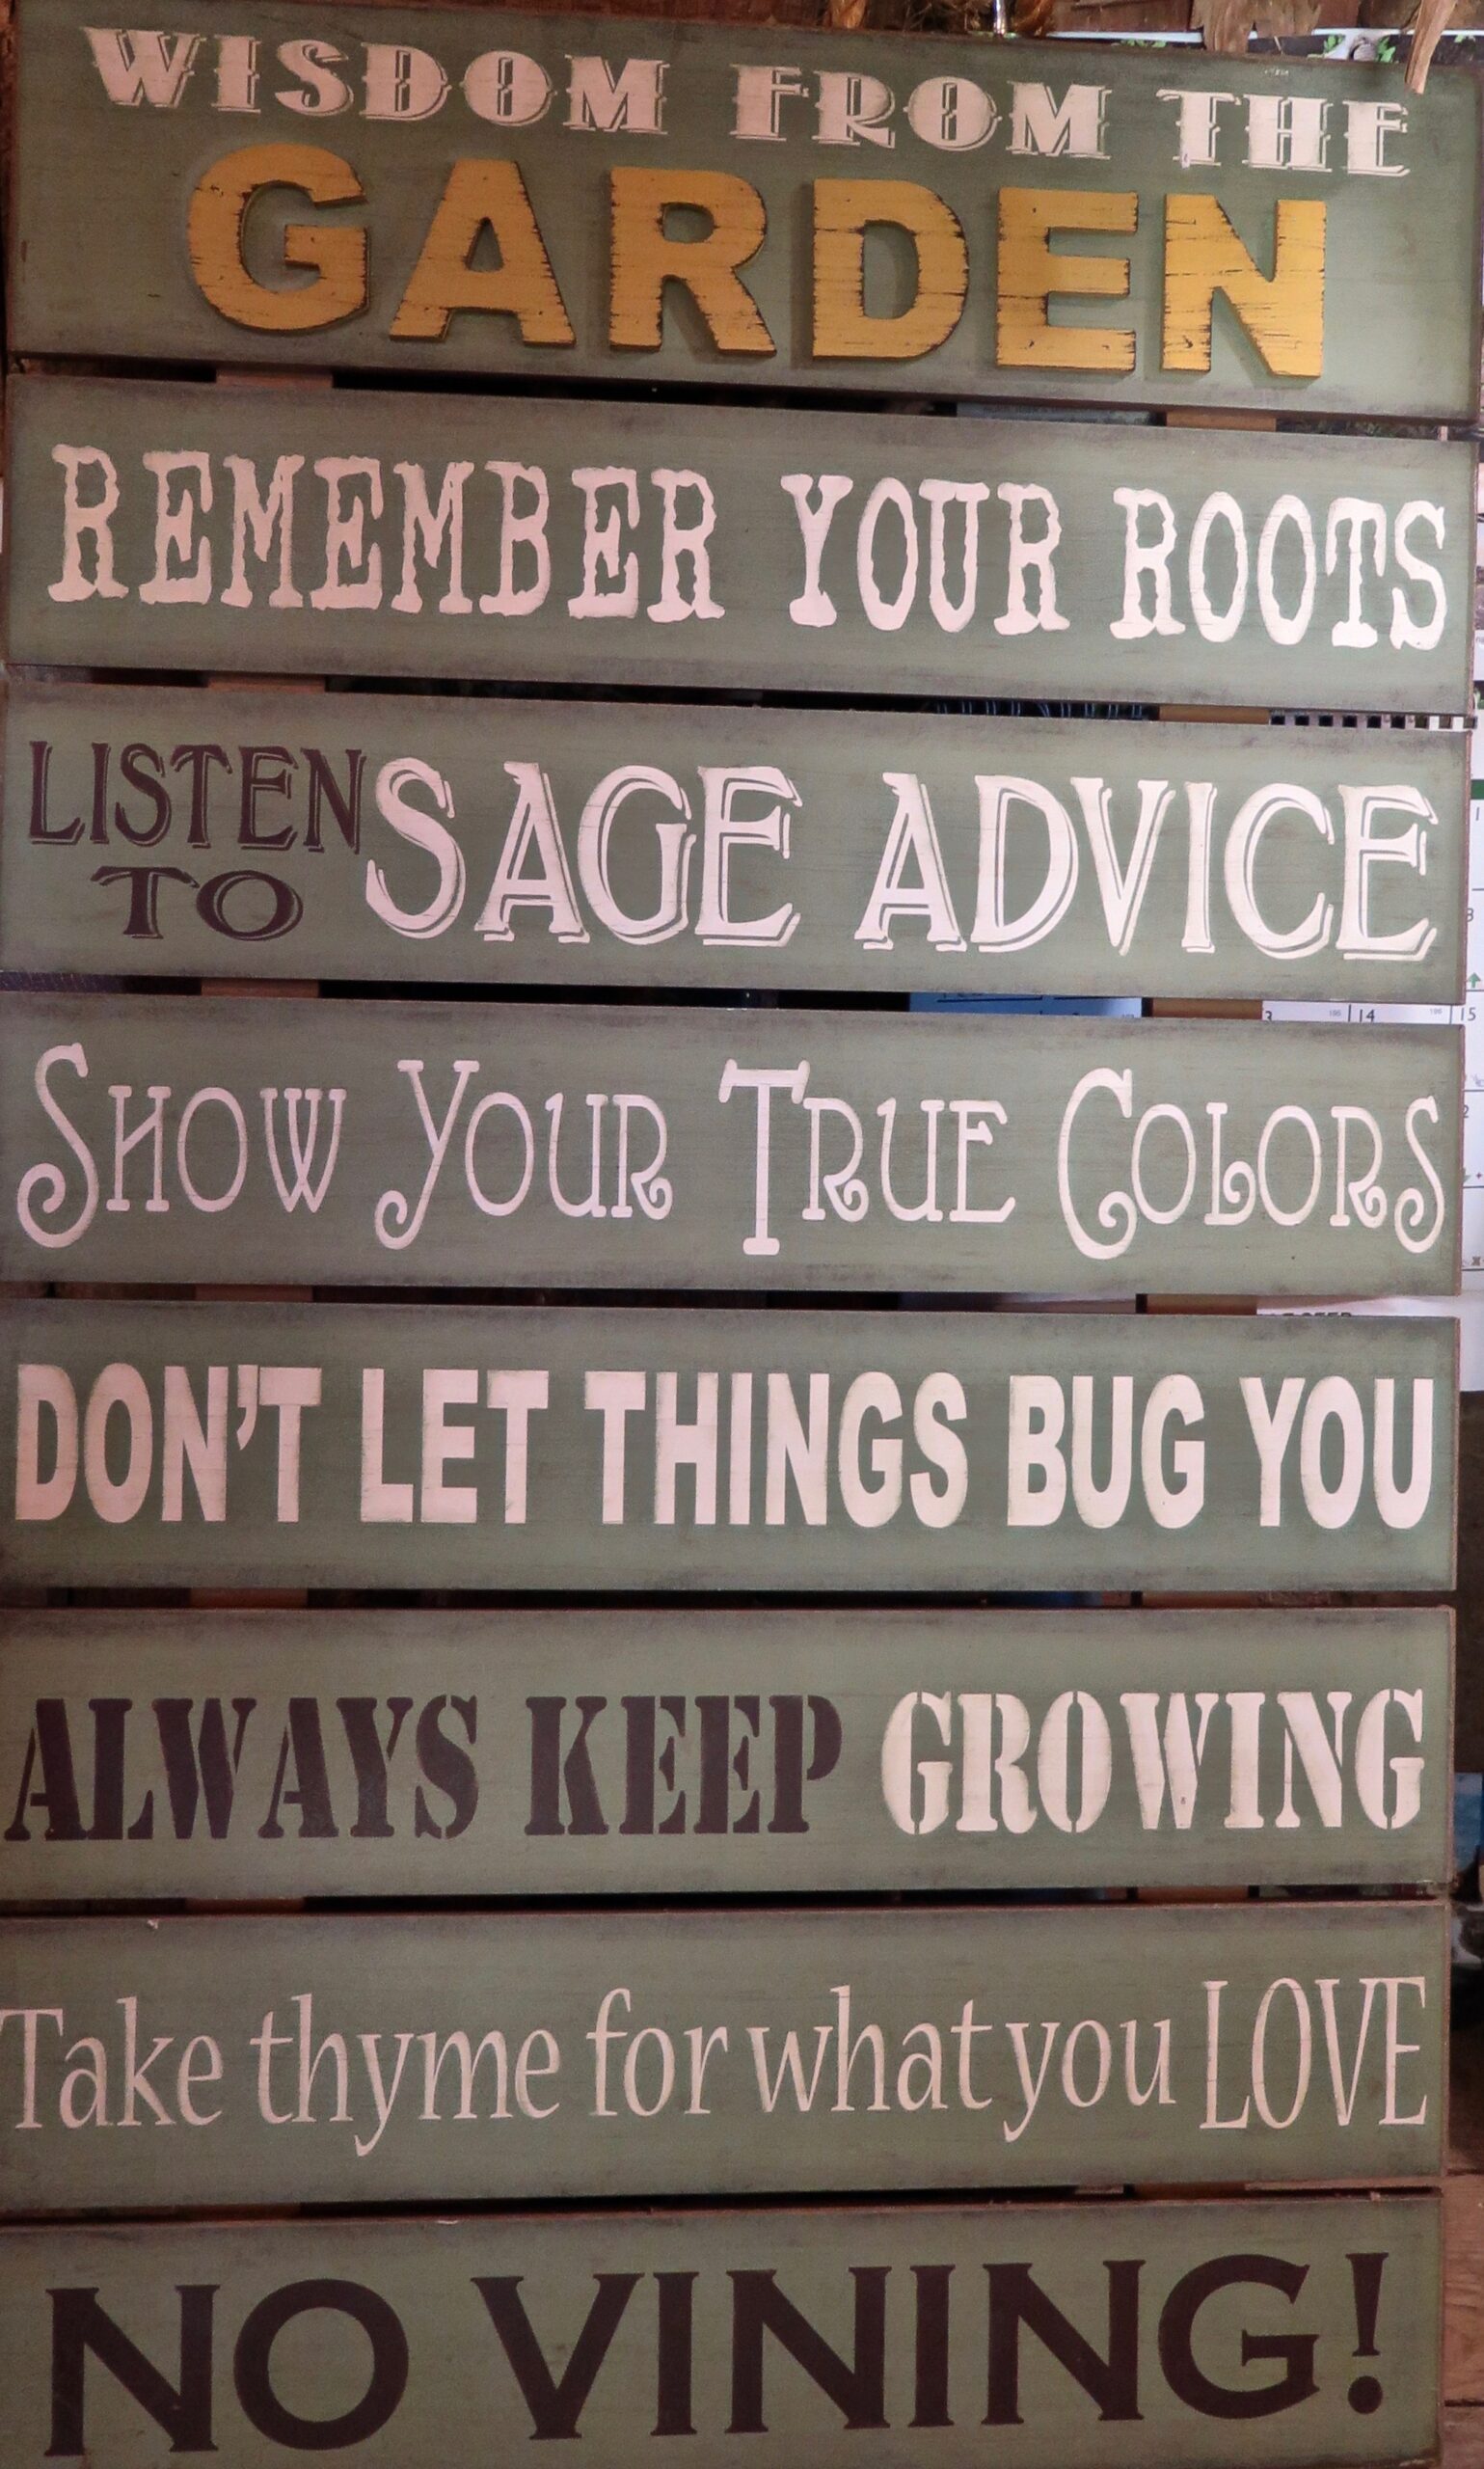 WISDOM FROM THE
GARDEN
REMEMBER YOUR ROOTS
LISTEN
TO
SAGE ADVICE
SHOW YOUR TRUE COLORS
DON'T LET THINGS BUG YOU
ALWAYS KEEP GROWING
Take thyme for what you LOVE
NO VINING!
14
15